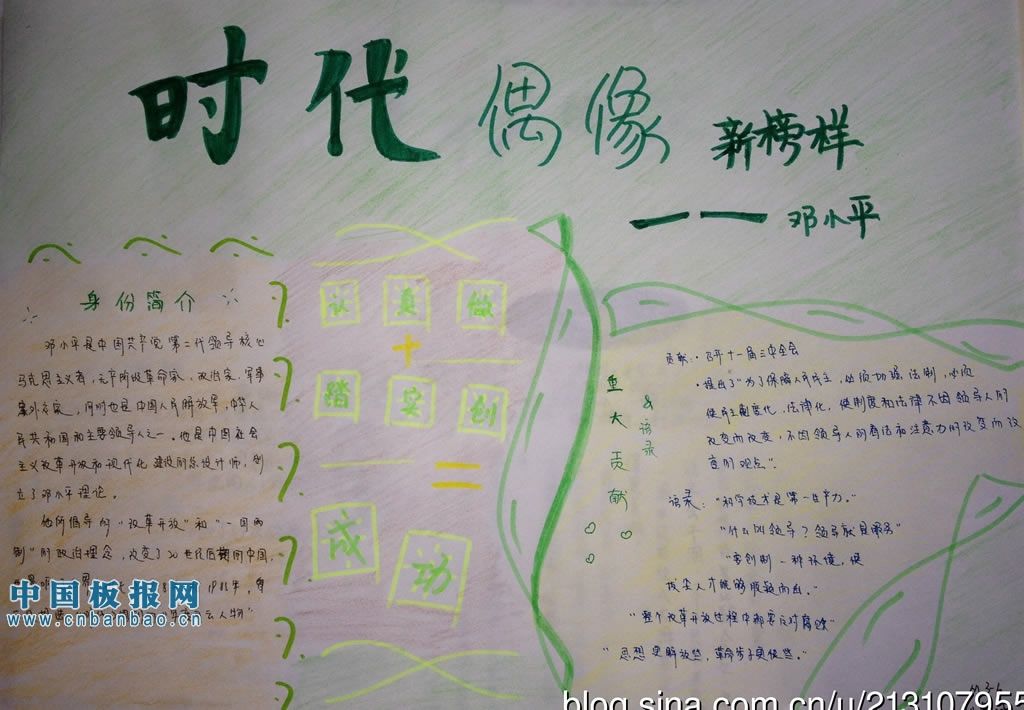 时代偶像新榜样
——邓小平
身份简介
邓小平是中国共产党第二代领导核心
马克思主义者,无产阶级革命家,政治家,军事
家外交家,同时也是中国人民解放军,中华人
民共和国的主要领导人之一。他是中国社会
主义改革开放和现代化建设的总设计师,创
立了邓小平理论。
他所倡导的“改革开放”和“一国两
制”的政治理念,改变了20世纪后期的中国,
风云人物”
认真做
+
踏实创
=
成功
重大贡献
&语录
贡献:·召开十一届三中全会
·提出了“为了保障人民民主,必须加强法制,必须
使民主制度化,法律化,使制度和法律不因领导人的
改变而改变,不因领导人的看法和注意力的改变而改
变的观点”.
语录:“科学技术是第一生产力。”
“什么叫领导?领导就是服务”
“要创制一种环境,使
拔尖人才能够脱颖而出。”
“整个改革开放过程中都要反对腐败”
“思想更解放些,革命步子更快些。”
中国板报网
www.cnbanbao.cn
blog.sina.com.cn/u/213107955